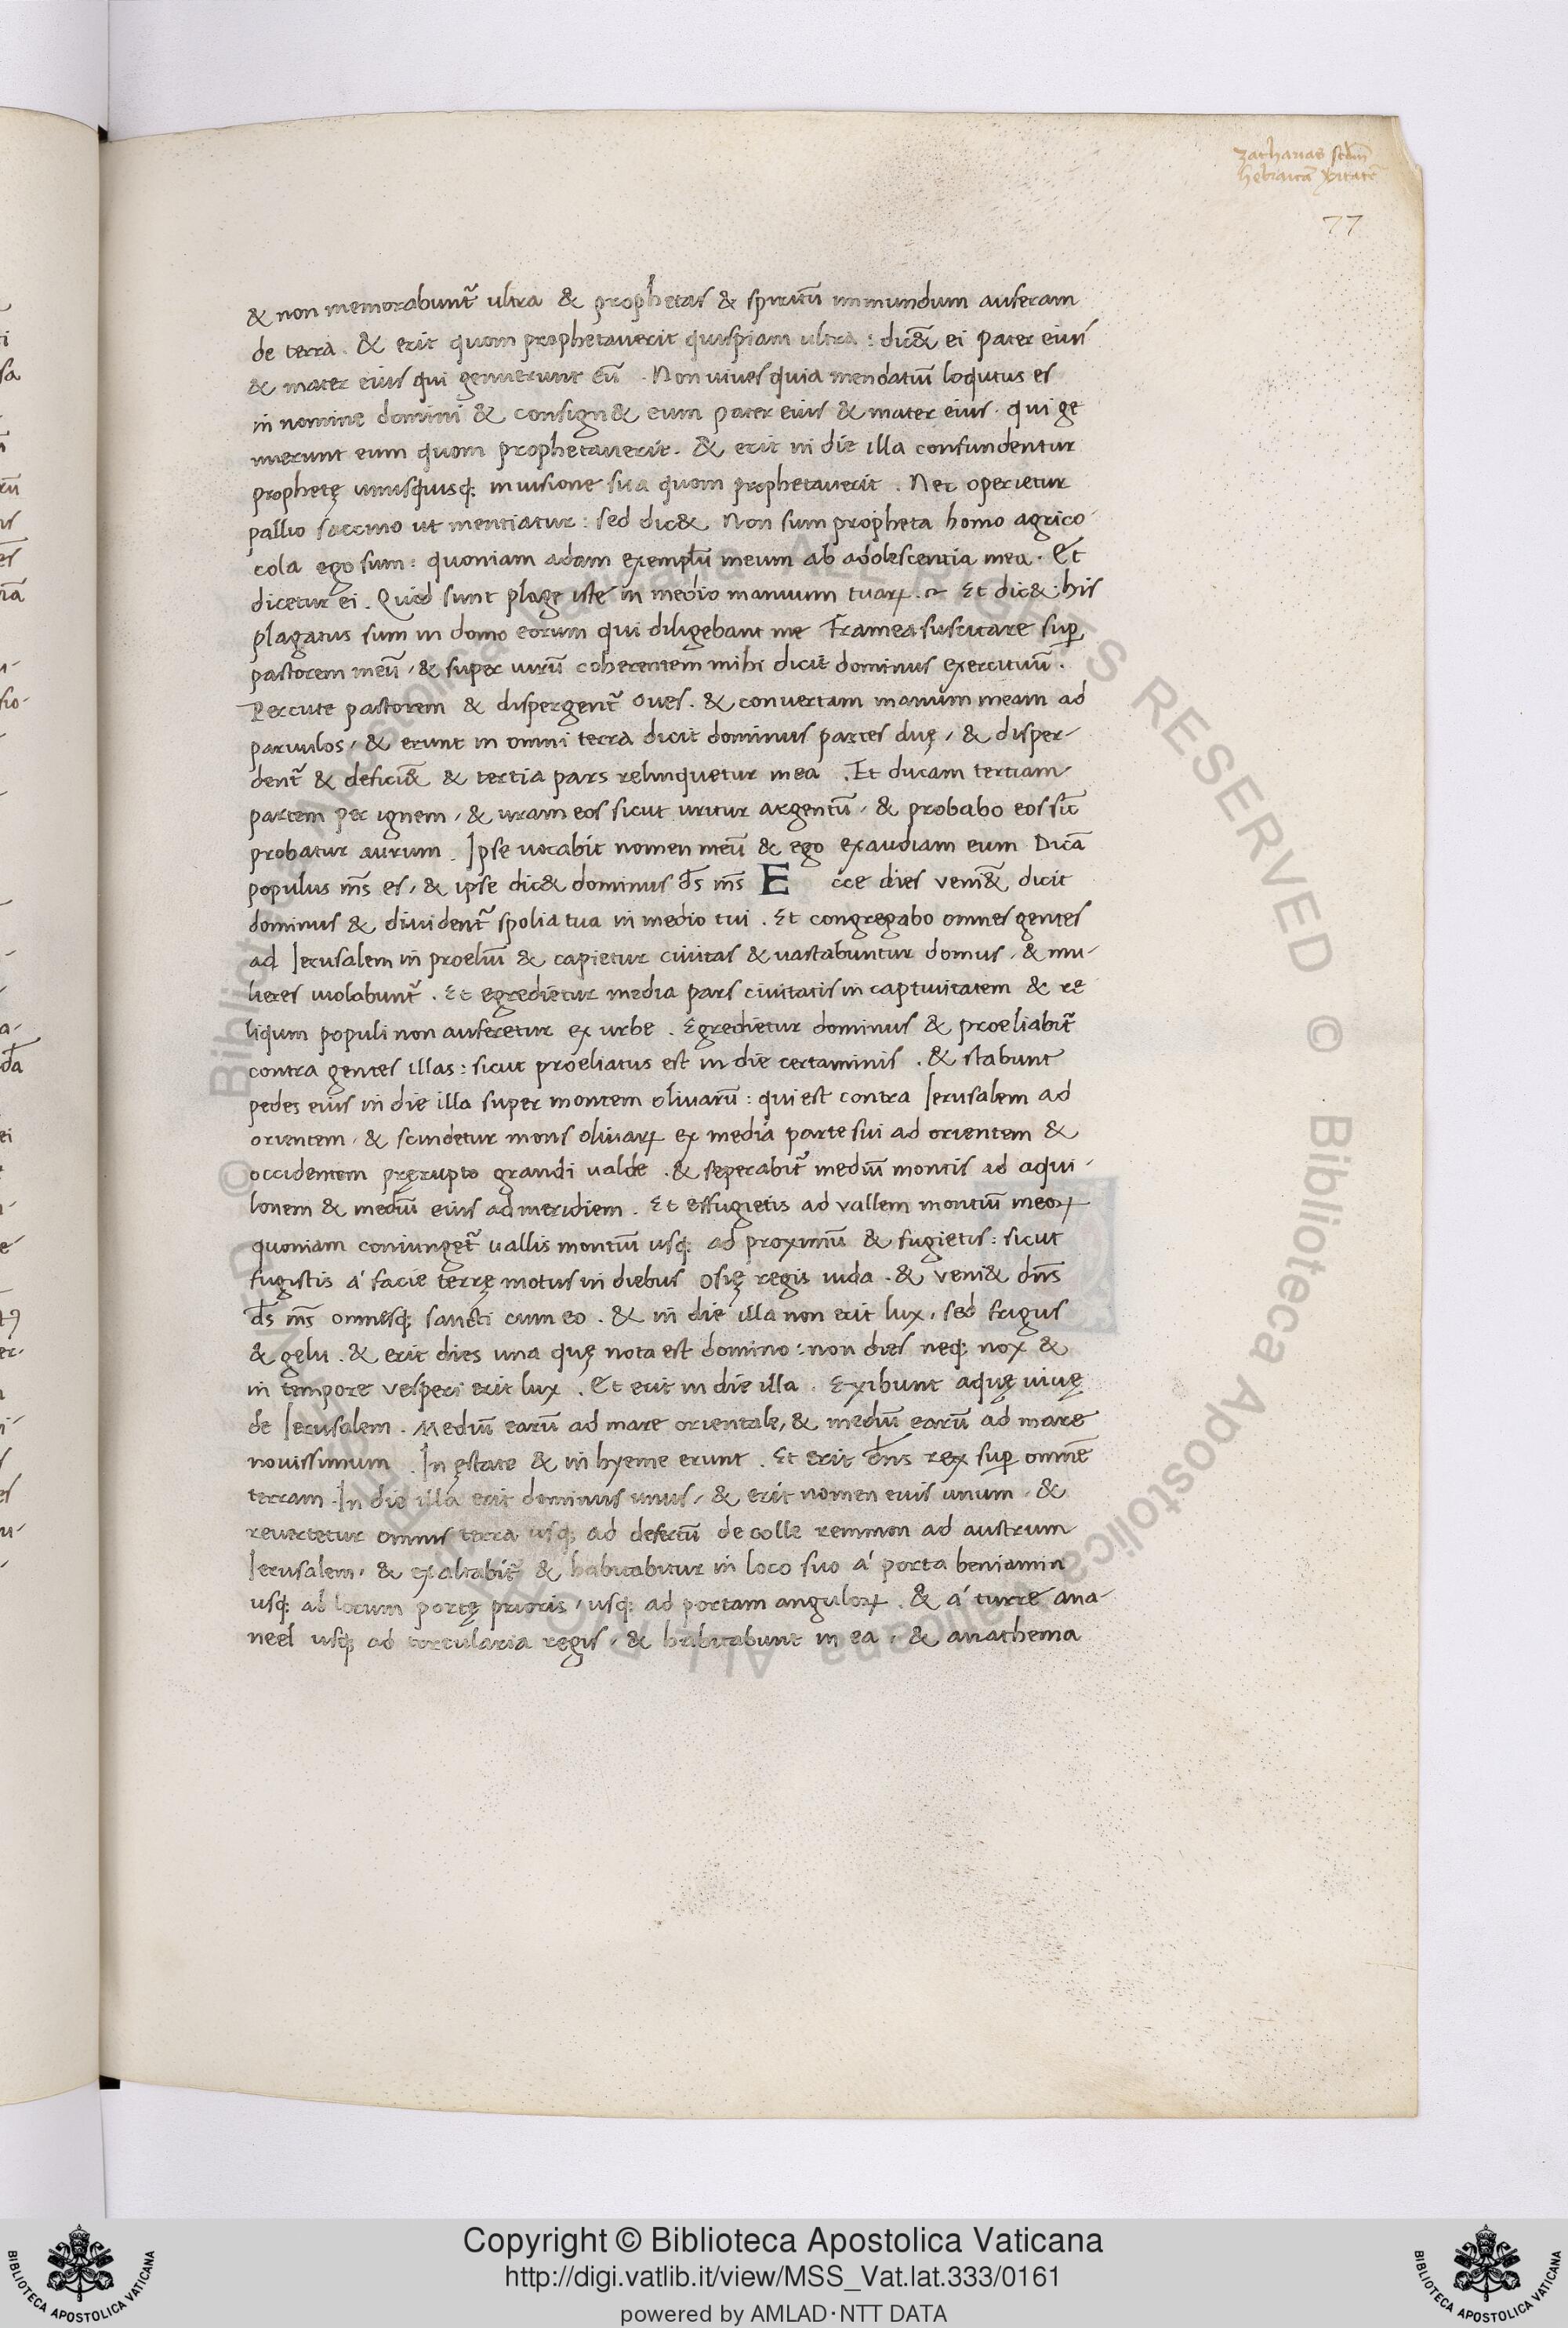 zacharias scdm̄
hebraicā ṽitatē
77
& non memorabunt᷑ ultra & prophetas & spiritū immundum auferam
de terra. & erit quom prophetauerit quispiam ultra: dic& ei pater eius
& mater eius qui genuerunt eū. Non uiues quia mendatiū loqutus es
in nomine domini & consign& eum pater eius & mater eius. qui ge
nuerunt eum quom prophetauerit. & erit in die illa confundentur
prophetę unusquisq; in uisione sua quom prophetauerit. Nec operietur
pallio saccino ut mentiatur: sed dic& Non sum propheta homo agrico-
cola ego sum: quoniam adam exemplū meum ab adolescentia mea. Et
dicetur ei. Quid sunt plage iste in medio manuum tuaꝝ.? Et dic&: his
plagatus sum in domo eorum qui diligebant me Framea suscitare suꝑ
pastorem meū, & super uirū coherentem mihi dicit dominus exercituū.
Percute pastorem & dispergent᷑ oues. & conuertam manum meam ad
paruulos, & erunt in omni terra dicit dominus partes duę, & disper-
dent᷑ & defici& & tertia pars relinquetur in ea. Et ducam tertiam
partem per ignem, & uram eos sicut uritur argentū, & probabo eos sic̄
probatur aurum. Ipse uocabit nomen meū & ego exaudiam eum Dicā
populus m̄s es, & ipse dic& dominus d̄s m̄s Ecce dies veni& dicit
dominus & diuident᷑ spolia tua in medio tui. Et congregabo omnes gentes
ad Ierusalem in proeliū & capietur ciuitas & uastabuntur domus, & mu-
lieres uiolabunt᷑. Et egredietur media pars ciuitatis in captiuitatem & re
liqum populi non auferetur ex urbe. Egredietur dominus & proeliabit᷑
contra gentes illas: sicut proeliatus est in die certaminis. & stabunt
pedes eius in die illa super montem oliuarū: qui est contra Ierusalem ad
orientem, & scindetur mons oliuaꝝ ex media parte sui ad orientem &
occidentem pręrupto grandi ualde. & seperabit᷑ mediū montis ad aqui-
lonem & mediū eius ad meridiem. Et effugietis ad vallem montiū meoꝝ
quoniam coniunget᷑ uallis montiū usq; ad proximū & fugietis: sicut
fugistis á facie terrę motus in diebus Osię regis iuda. & veni& dn̄s
d̄s m̄s omnesq; sancti cum eo. & in die illa non erit lux, sed frigus
& gelu. & erit dies una quę nota est domino: non dies neq; nox &
in tempore vesperi erit lux. Et erit in die illa. Exibunt aquę uiuę
de Ierusalem. Mediū earū ad mare orientale, & mediū earū ad mare
nouissimum. In ęstate & in hyeme erunt. Et erit dn̄s rex suꝑ omnē
terram. In die illa erit dominus unus, & erit nomen euis unum. &
reuertetur omnis terra usq; ad desertū de colle remmon ad austrum
Ierusalem, & exaltabit᷑ & habitabitur in loco suo á porta beniamin
usq; ad locum portę prioris, usq; ad portam anguloꝝ. & á turre ana-
neel usq; ad torcularia regis, & habitabunt in ea, & anathema
Copyright © Biblioteca Apostolica Vaticana
http://digi.vatlib.it/view/MSS_Vat.lat.333/0161
powered by AMLAD·NTT DATA